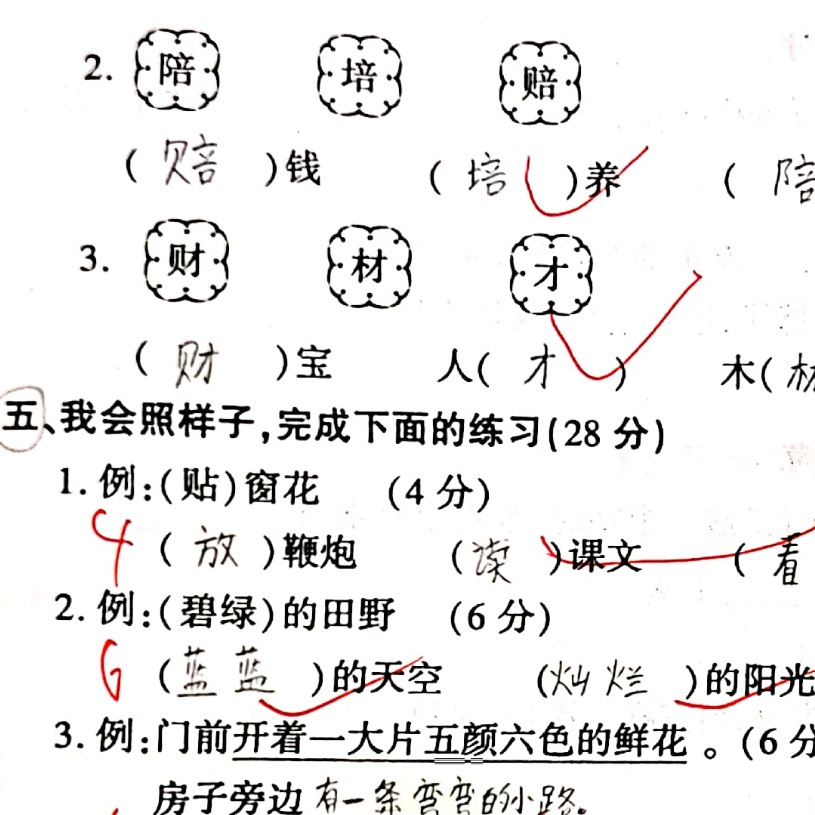 2. 陪 培 赔
( 赔 )钱 ( 培 )养 ( 陪
3. 财 材 才
( 财 )宝 人( 才 ) 木( 材
五、我会照样子,完成下面的练习(28 分)
1. 例:(贴)窗花 (4 分)
4 ( 放 )鞭炮 ( 读 )课文 ( 看
2. 例:(碧绿)的田野 (6 分)
6 ( 蓝蓝 )的天空 (灿烂 )的阳光
3. 例:门前开着一大片五颜六色的鲜花。(6 分
房子旁边有一条弯弯的小路。